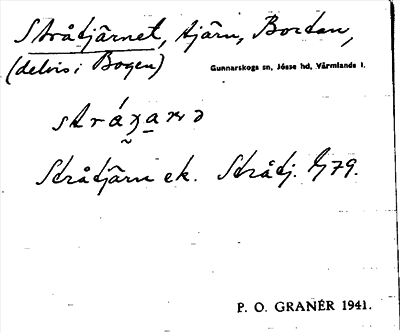 Stråtjärnet, tjärn, Bortan,
(delvis i Bogen)
Gunnarskogs sn, Jösse hd, Värmlands l.
Stråtjärn ek. Stråtj. G79.
P. O. GRANÉR 1941.